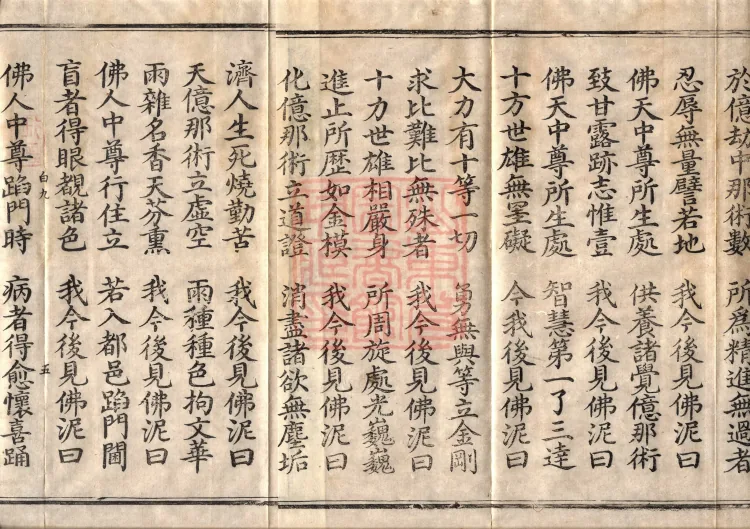 於億劫中那術數 所為精進無過者
忍辱無量譬若地 我今後見佛泥曰
佛天中尊所生處 供養諸覺億那術
致甘露跡志惟壹 我今後見佛泥曰
佛天中尊所生處 智慧第一了三達
十方世雄無罣礙 今我後見佛泥曰
大力有十等一切 勇無與等立金剛
求比難比無殊者 我今後見佛泥曰
十力世雄相嚴身 所周旋處光巍巍
進止所歷如金模 我今後見佛泥曰
化億那術立道證 消盡諸欲無塵垢
濟人生死燒勤苦 我今後見佛泥曰
天億那術立虛空 雨種種色拘文華
雨雜名香天芬熏 我今後見佛泥曰
佛人中尊行住立 若入都邑蹈門閫
盲者得眼覩諸色 我今後見佛泥曰
白九 五
佛人中尊蹈門時 病者得愈懷喜踊